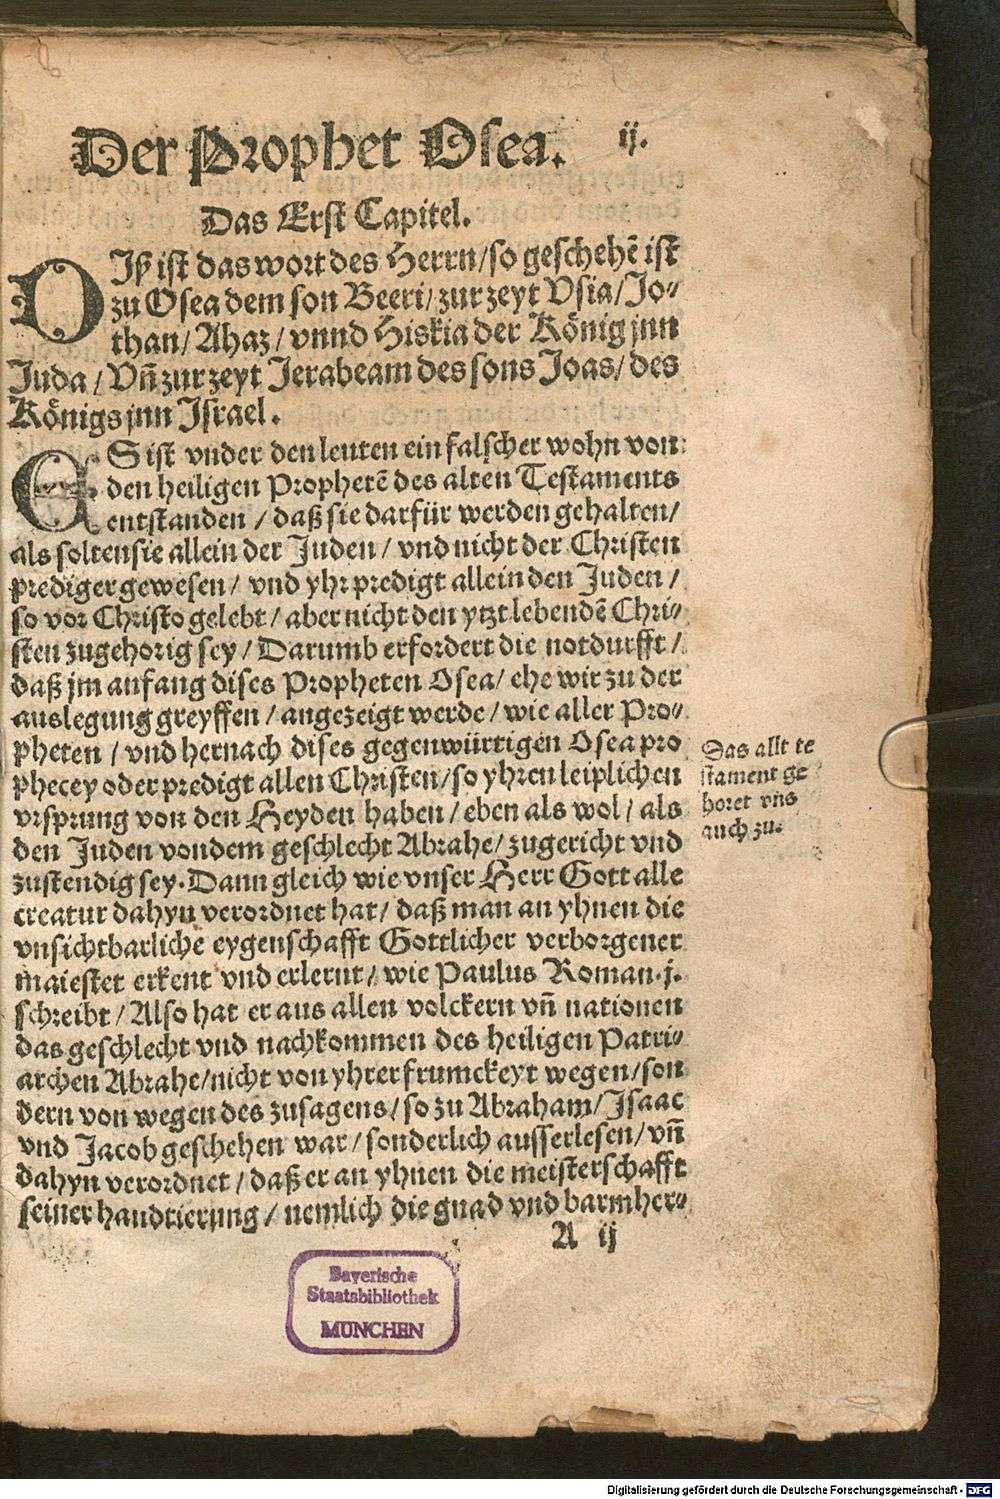 Der Prophet Osea. ij.
Das Erst Capitel.
DIß ist das wort des Herrn/so geschehē ist
zu Osea dem son Beeri/ zur zeyt Vsia/Jo-
than/ Ahaz/ vnnd Hiskia der König jnn
Juda/ Vñ zur zeyt Jerabeam des sons Joas/ des
Königs jnn Israel.
ES ist vnder den leuten ein falscher wohn von
den heiligen Prophetē des alten Testaments
entstanden / daß sie darfür werden gehalten/
als solten sie allein der Juden / vnd nicht der Christen
prediger gewesen/ vnd yhr predigt allein den Juden /
so vor Christo gelebt / aber nicht den ytzt lebendē Chri-
sten zugehorig sey / Darumb erfordert die notdurfft /
daß jm anfang dises Propheten Osea/ ehe wir zu der
auslegung greyffen / angezeigt werde/ wie aller Pro-
pheten / vnd hernach dises gegenwürtigen Osea pro
phecey oder predigt allen Christen/so yhren leiplichen
vrsprung von den Heyden haben/ eben als wol/ als
den Juden von dem geschlecht Abrahe/ zugericht vnd
zustendig sey. Dann gleich wie vnser Herr Gott alle
creatur dahyn verordnet hat/ daß man an yhnen die
vnsichtbarliche eygenschafft Gottlicher verborgener
maiestet erkent vnd erlernt/ wie Paulus Roman. j.
schreibt / Also hat er aus allen volckern vñ nationen
das geschlecht vnd nachkommen des heiligen Patri-
archen Abrahe/nicht von yhrer frumckeyt wegen/son
dern von wegen des zusagens/so zu Abraham/Isaac
vnd Jacob geschehen war/ sonderlich ausserlesen/ vñ
dahyn verordnet / daß er an yhnen die meisterschafft
seiner handtierung / nemlich die gnad vnd barmher-
A ij
Das allt te
stament ge
horet vns
auch zu.
Bayerische
Staatsbibliothek
MÜNCHEN
Digitalisierung gefördert durch die Deutsche Forschungsgemeinschaft - DFG